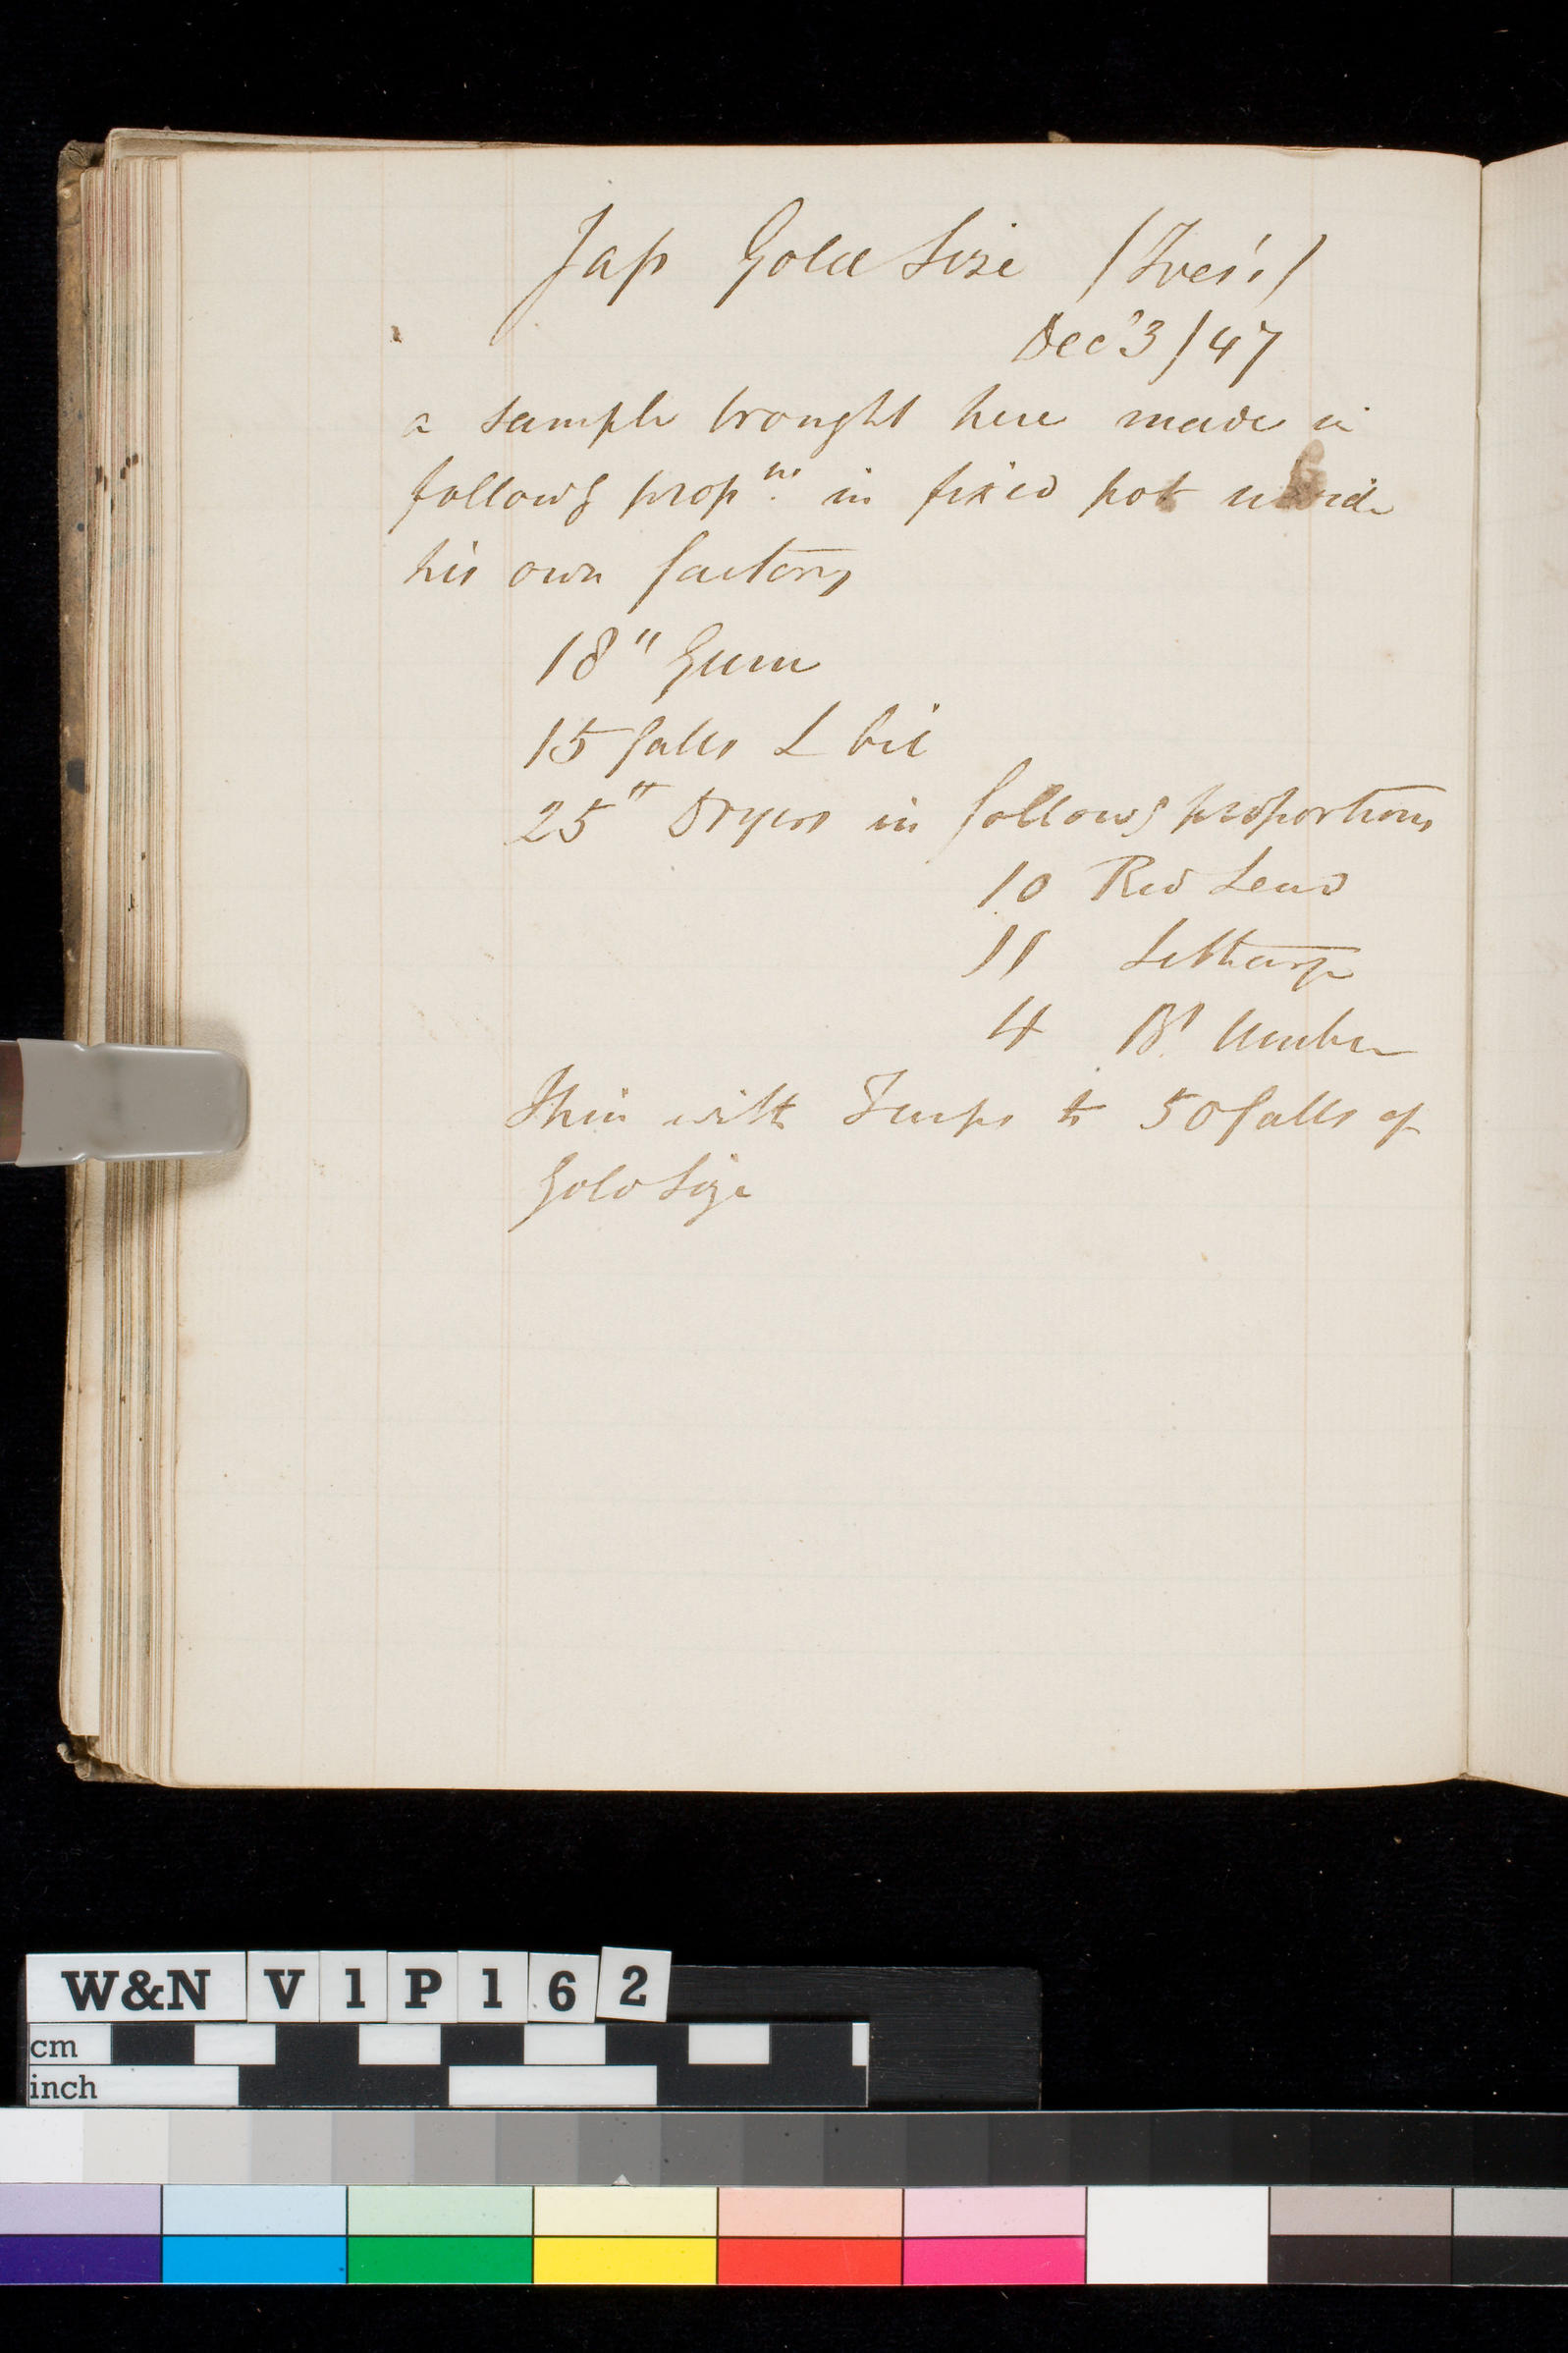 Jap Gold Size (Ives's)
Decr 3/47
a sample brought here made in
followg propns in fixed pot inside
his own factory
18" Gum
15 galls L Oil
25" Dryers in followg proportions
10 Red Lead
11 Litharge
4 Bt Umber
Thin with Turps to 50 galls of
Gold Size
W&N V1P162
cm
inch